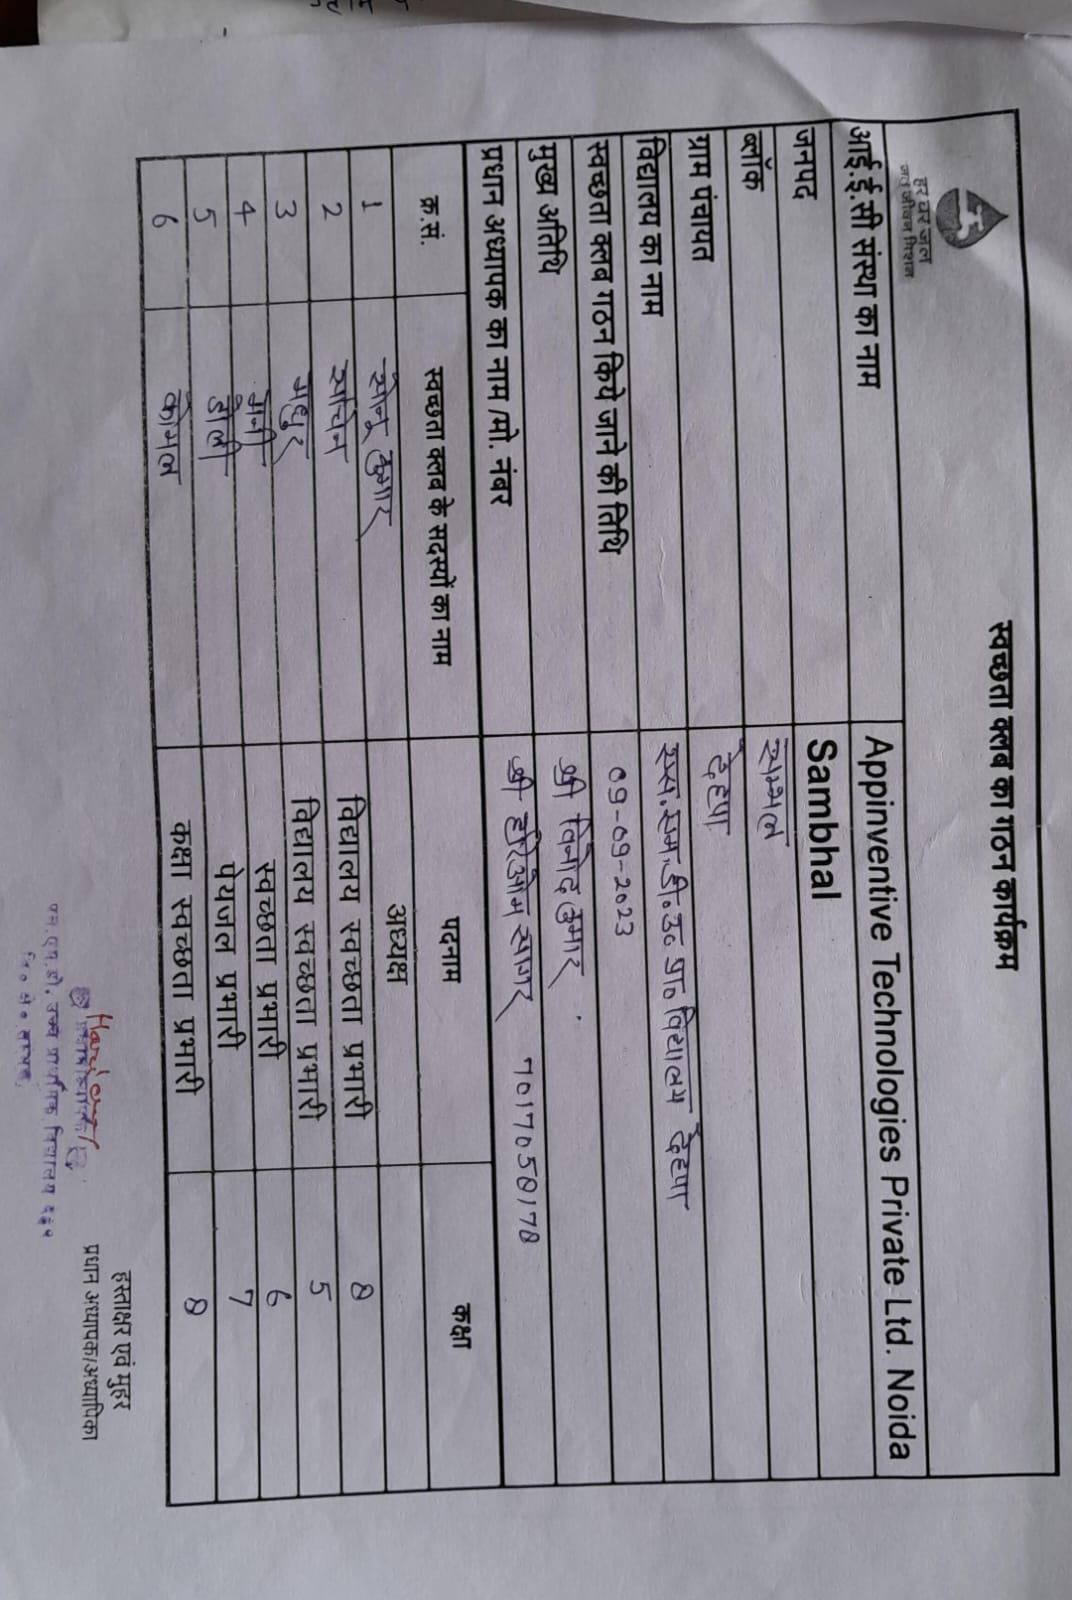 स्वच्छता क्लब का गठन कार्यक्रम
हर घर जल
जल जीवन मिशन
आई.ई.सी संस्था का नाम Appinventive Technologies Private Ltd. Noida
जनपद Sambhal
ब्लॉक सम्भल
ग्राम पंचायत देहपा
विद्यालय का नाम एस.एम.डी.उ० प्रा० विद्यालय देहपा
स्वच्छता क्लब गठन किये जाने की तिथि 09-09-2023
मुख्य अतिथि श्री विनोद कुमार
प्रधान अध्यापक का नाम /मो. नंबर श्री हरिओम सागर 7017058178
क्र.सं. स्वच्छता क्लब के सदस्यों का नाम पदनाम कक्षा
1 सोनू कुमार अध्यक्ष
2 सचिन विद्यालय स्वच्छता प्रभारी 8
3 मधुर विद्यालय स्वच्छता प्रभारी 5
4 मनी स्वच्छता प्रभारी 6
5 डौली पेयजल प्रभारी 7
6 कोमल कक्षा स्वच्छता प्रभारी 8
हस्ताक्षर एवं मुहर
प्रधान अध्यापक/अध्यापिका